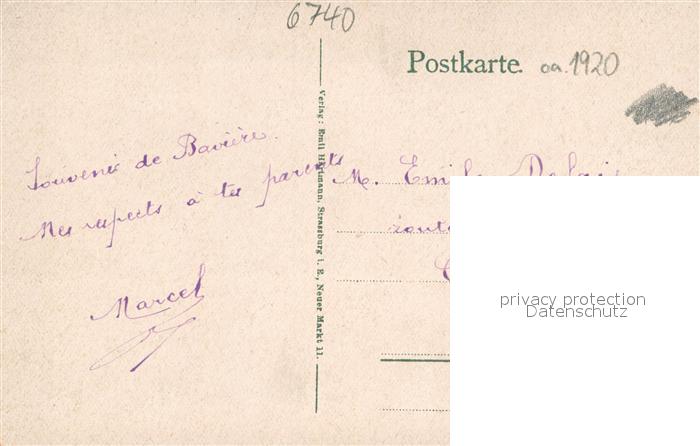 6740
Postkarte. ca. 1920
Souvenir de Bavière.
Mes respects à tes parents
Marcel
Verlag: Emil Hartmann, Strassburg i. E., Neuer Markt 11.
M. Emile
route
privacy protection
Datenschutz